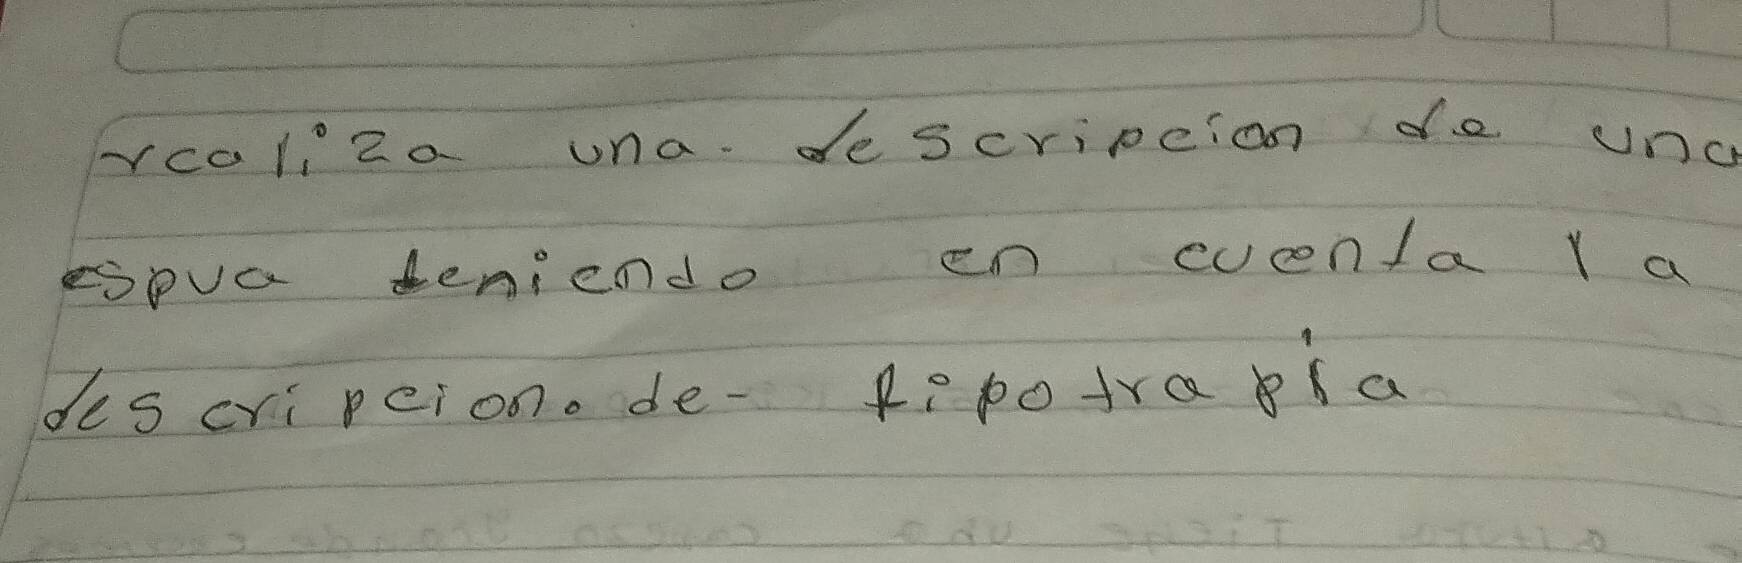 realiza una. descripcion de una
espua teniendo en cuenta la
descripcion. de- tipotrapía